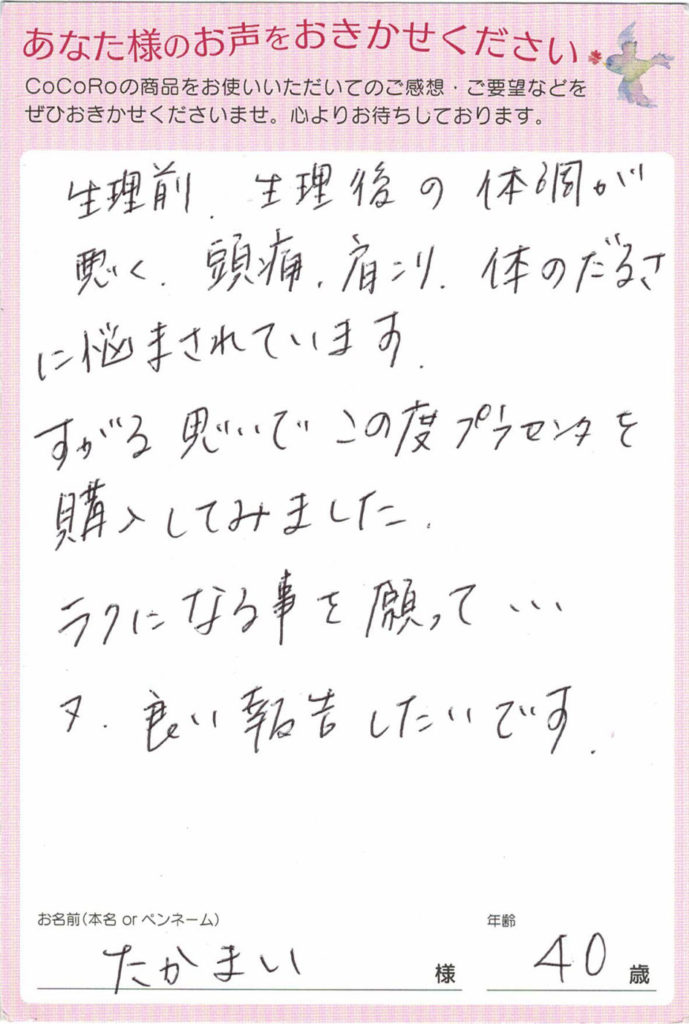 あなた様のお声をおきかせください
CoCoRoの商品をお使いいただいてのご感想・ご要望などを
ぜひおきかせくださいませ。心よりお待ちしております。
生理前、生理後の体調が
悪く、頭痛、肩こり、体のだるさ
に悩まされています。
すがる思いでこの度プラセンタを
購入してみました。
ラクになる事を願って・・・
又、良い報告したいです。
お名前(本名 or ペンネーム)
年齢
たかまい 様 40 歳